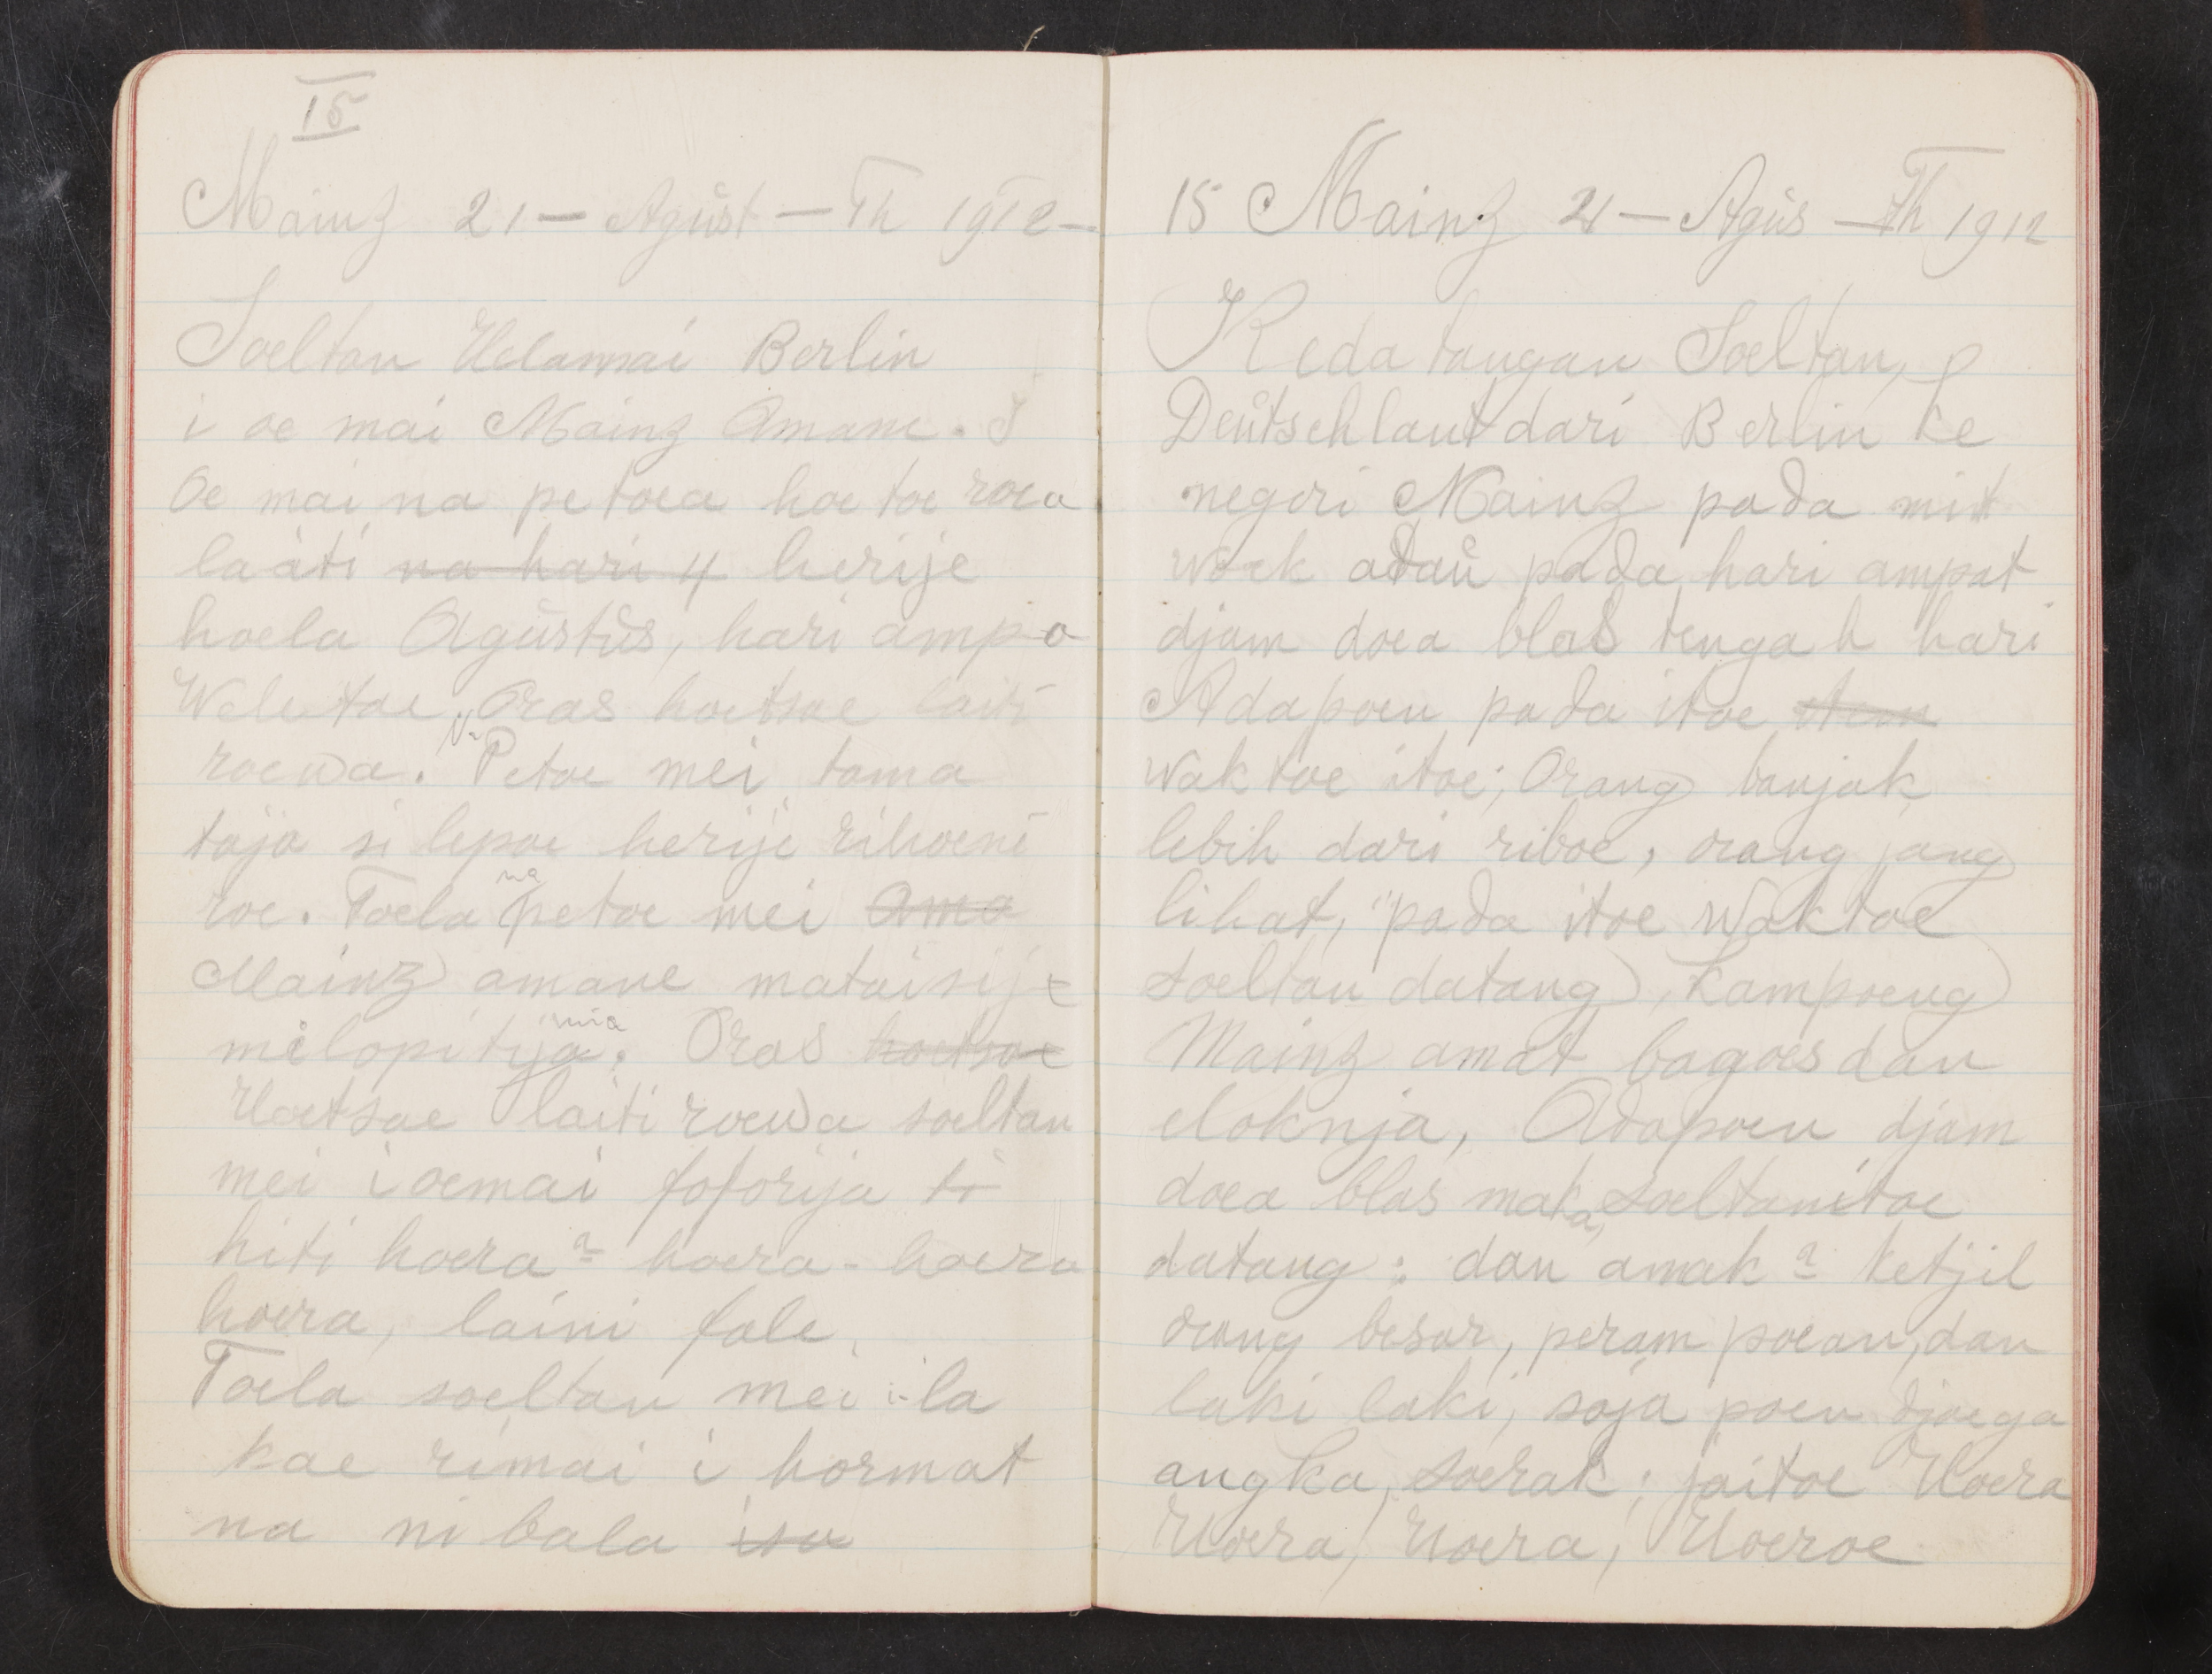 15
Mainz 21 — Agŭst — Th 1912 —
Soeltan Helamai Berlin
i oe mai Mainz Amane. I
Oe mai na petoea hoetoe roea
laäti na hari 4 herije
hoela Agŭstŭs, hari ampa
Weleetoe, Oras hoetsoe laiti
roewa. Na Petoe mei tama
taja si lepoe herije rihoeni
roe. Toela na petoe mei ama
Mainz amane mataisije
melopitija mia. Oras hoetsoe
Hoetsoe laiti roewa soeltan
mei i oemai foforija ti
hiti hoera 2 hoera - hoera
hoera, laini fale,
Toela soeltan mei i-la
kae rimai i hormat
na ni bala isa
15 Mainz 21 — Agŭs — Th 1912
Kedatangan Soeltan,
Deŭtschlant dari Berlin ke
negeri Mainz pada mit
woek adaŭ pada hari ampat
djam doea blas tengah hari
Adapoen pada itoe
waktoe itoe; Orang banjak
lebih dari riboe, orang jang
lihat, "pada itoe waktoe
soeltan datang), kampoeng
Mainz amat bagoes dan
eloknja, Adapoen djam
doea blas maka, soeltanitoe
datang: dan anak 2 ketjil
orang besar, perampoean, dan
laki laki, saja poen djoega
angka, soerak; jaitoe Hoera
Hoera, Hoera, Hoeroe